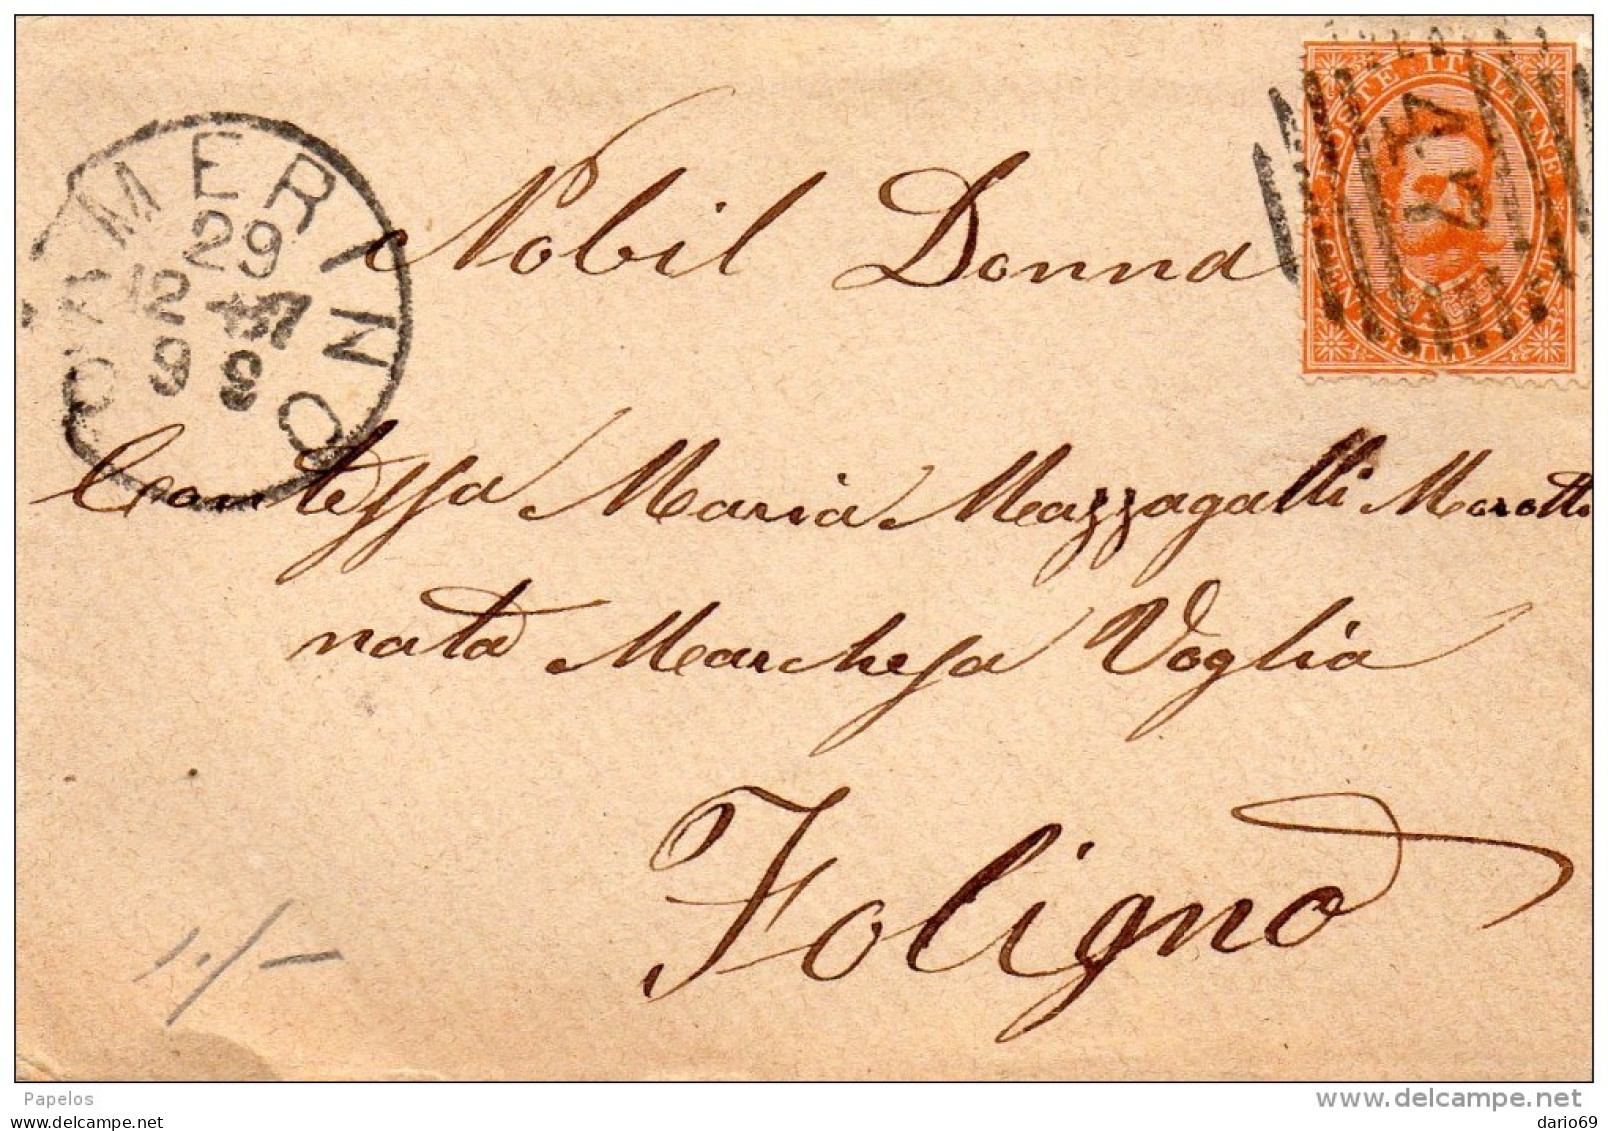 CAMERINO
29
12
9 8
POSTE ITALIANE
CENT. VENTI
Nobil Donna
Contessa Maria Mazzagalli Morotti
nata Marchesa Voglia
Foligno
Papelos
www.delcampe.net
dario69